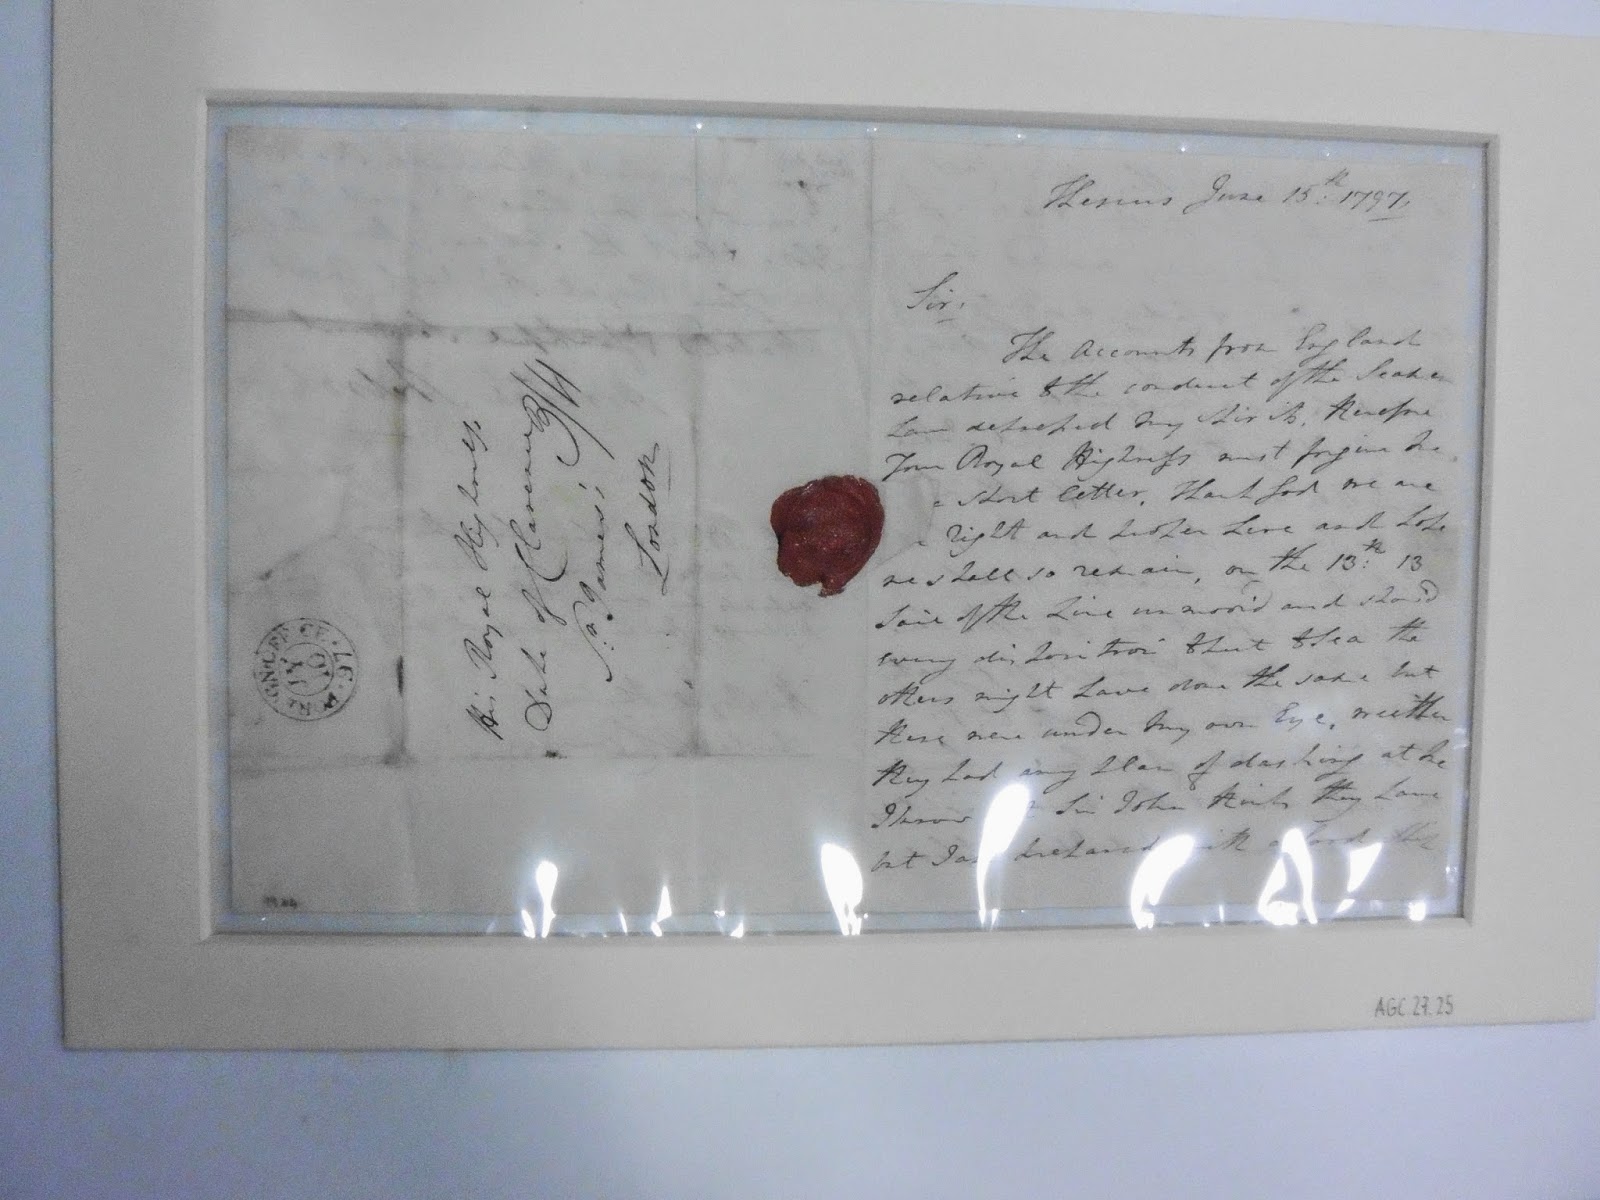 Theseus June 15th: 1797,
Sir,
The Accounts from England
relative to the conduct of the Seamen
have detached my
Your Royal Highness must forgive me
a short letter, thank God we are
right and here and hope
we shall so remain, on the 13th: 13
Sail of the Line unmoor'd and show'd
every disposition to put to Sea the
others might have done the same but
these were under my own Eye, whether
they had any plan of dashing at me
I know Sir John thinks they have
but I am prepared with a
His Royal Highness,
Duke of Clarence
St: James's
London
AGC 27.25